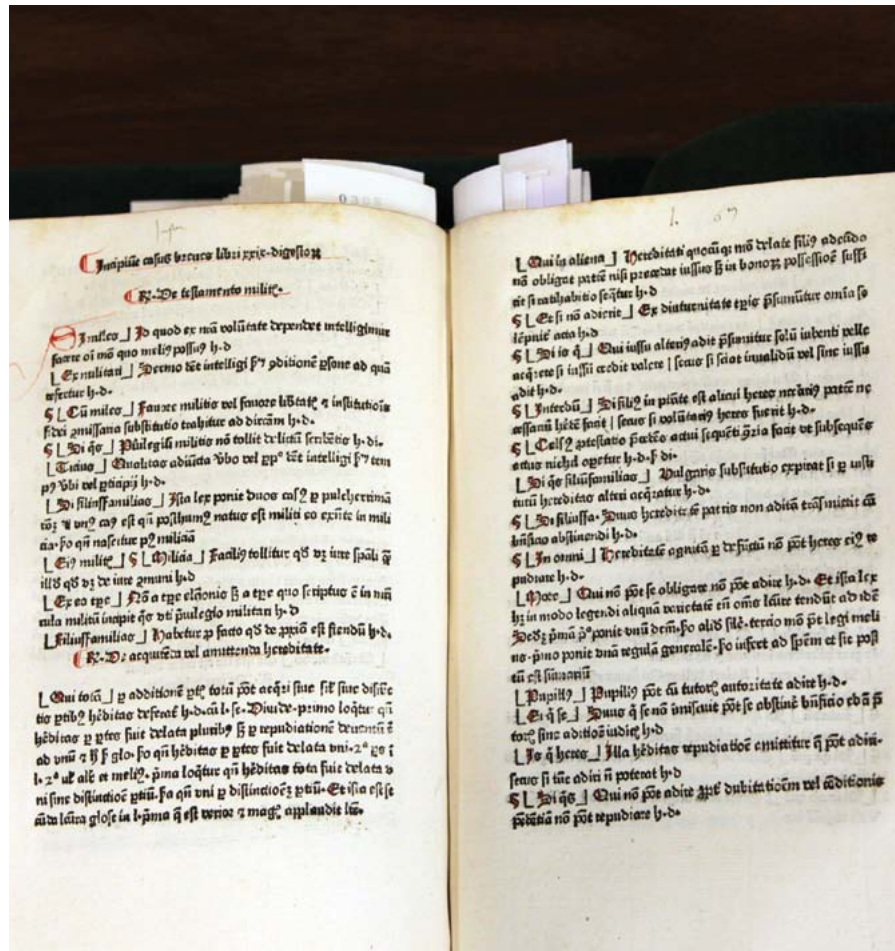 0305
Incipiũt casus breues libri xxix. digestoꝝ
R. De testamento milit.
Si miles ⅃ Id quod ex mã volũtate dependet intelligimur
facere oĩ mõ quo meliꝰ possuꝰ h.d
⌊ Ex militari ⅃ Sermo dꝫ intelligi
refertur h.d.
¶ ⌊ Cũ miles ⅃ Fauore militis vel fauore libtatꝭ ⁊ institutiõis
substitutio trahitur ad h.d.
¶ ⌊ Si q̃s ⅃ Puilegiũ militis nõ tollit delictũ scribẽtis h. di.
⌊ Ticius ⅃ Qualitas adiũcta vbo vel intelligi tem
h.d.
⌊ Si filiusfamilias ⅃ Ista lex ponit duos casꝰ ꝑ pulcherrimã
vnꝰ caꝰ est qñ posthumꝰ natus est militi eo exñte in mili
cia. qñ nascitur pꝰ miliciã
⌊ Eiꝰ militꝭ ⅃ ¶ ⌊ Milicia ⅃ Faciliꝰ tollitur qd vꝫ iure spãli
illd qd vꝫ de iure ꝯmuni h.d
⌊ Ex eo tꝑe ⅃ Nõ a tꝑe sꝫ a tꝑe quo scriptus ẽ in
cula militũ incipit q̃s vti p̃uilegio militari h.d
⌊ Filiusfamilias ⅃ Habetur ꝓ facto qd de ꝓxiõ est fiendũ h.d.
R. De acquirẽda vel amittenda hereditate.
⌊ Qui totã ⅃ ꝑ additionẽ ptꝭ totũ põt acq̃ri siue sit siue
ptibꝰ hẽditas h.d. l. se. Diuide. primo loq̃tur qñ
hẽditas ꝑ ptes fuit delata pluribꝰ sꝫ ꝑ repudiationẽ deuentũ ẽ
ad vnũ glo. qñ hẽditas ꝑ ptes fuit delata vni. 2ᵃ
l. 2ᵃ alẽ et meliꝰ. pma loq̃tur qñ hẽditas tota fuit delata v
ni sine distinctiõe ptiũ. qñ vni ꝑ distinctiõeꝫ ptiũ. Et ista est se
cũda glose in l. pma q̃ est verior ⁊ magꝭ applaudit
l. 67
⌊ Qui in aliena ⅃ Hereditati quocũqꝫ mõ delate filiꝰ
nõ obligat patrẽ nisi precedat iussus sꝫ in bonoꝝ possessiõe suffi
cit si ratihabitio seq̃tur h.d
¶ ⌊ Et si nõ adierit ⅃ Ex diuturnitate tꝑis p̃sumũtur omĩa so
lẽpnit acta h.d
¶ ⌊ Si is q̃ ⅃ Qui iussu alteriꝰ adit p̃sumitur solũ iubenti velle
acq̃rere si iussũ credit valere | secus si sciat inualidũ vel sine iussu
adit h.d.
¶ ⌊ Interdũ ⅃ Si filiꝰ in est alicui heres patrẽ ne
cessariũ hẽdẽ facit | secus si volũtariꝰ heres fuerit h.d.
¶ ⌊ Celsꝰ ⅃ ꝓtestatio actui sequẽti facit vt subsequẽs
actus nichil oꝑetur h.d.
⌊ Si q̃s filiũfamilias ⅃ Vulgaris substitutio expirat si ꝑ insti
tutũ hereditas alteri acq̃ratur h.d.
¶ ⌊ Si filiusfa. Suus heredidatẽ patris non aditã trãsmittit cũ
bñficio abstinendi h.d.
¶ ⌊ In omni ⅃ Hereditatẽ agnitã ꝑ defũctũ nõ põt heres eiꝰ re
pudiare h.d.
⌊ More ⅃ Qui nõ põt se obligare nõ põt adire h.d. Et ista lex
hꝫ in modo legendi aliquã varietatẽ oms tendũt ad idẽ
pmã ponit vnũ alid silẽ. tercio mõ põt legi meli
us. pmo ponit vnã regulã generalẽ. infert ad spẽm et sic posi
tũ est sũmariũ
⌊ Pupillꝰ ⅃ Pupillꝰ põt cũ tutorꝭ autoritate adire h.d.
⌊ Ei q̃ se ⅃ Suus q̃ se nõ põt se abstinẽ bñficio p̃
torꝭ sine aditiõe iudicꝭ h.d
⌊ Is q̃ heres ⅃ Illa hẽditas repudiatiõe amittitur q̃ põt adiri.
secus si tũc adiri ñ poterat h.d
¶ ⌊ Si q̃s ⅃ Qui nõ põt adire ꝓpt dubitatiõem vel cõditionis
nõ põt repudiare h.d.